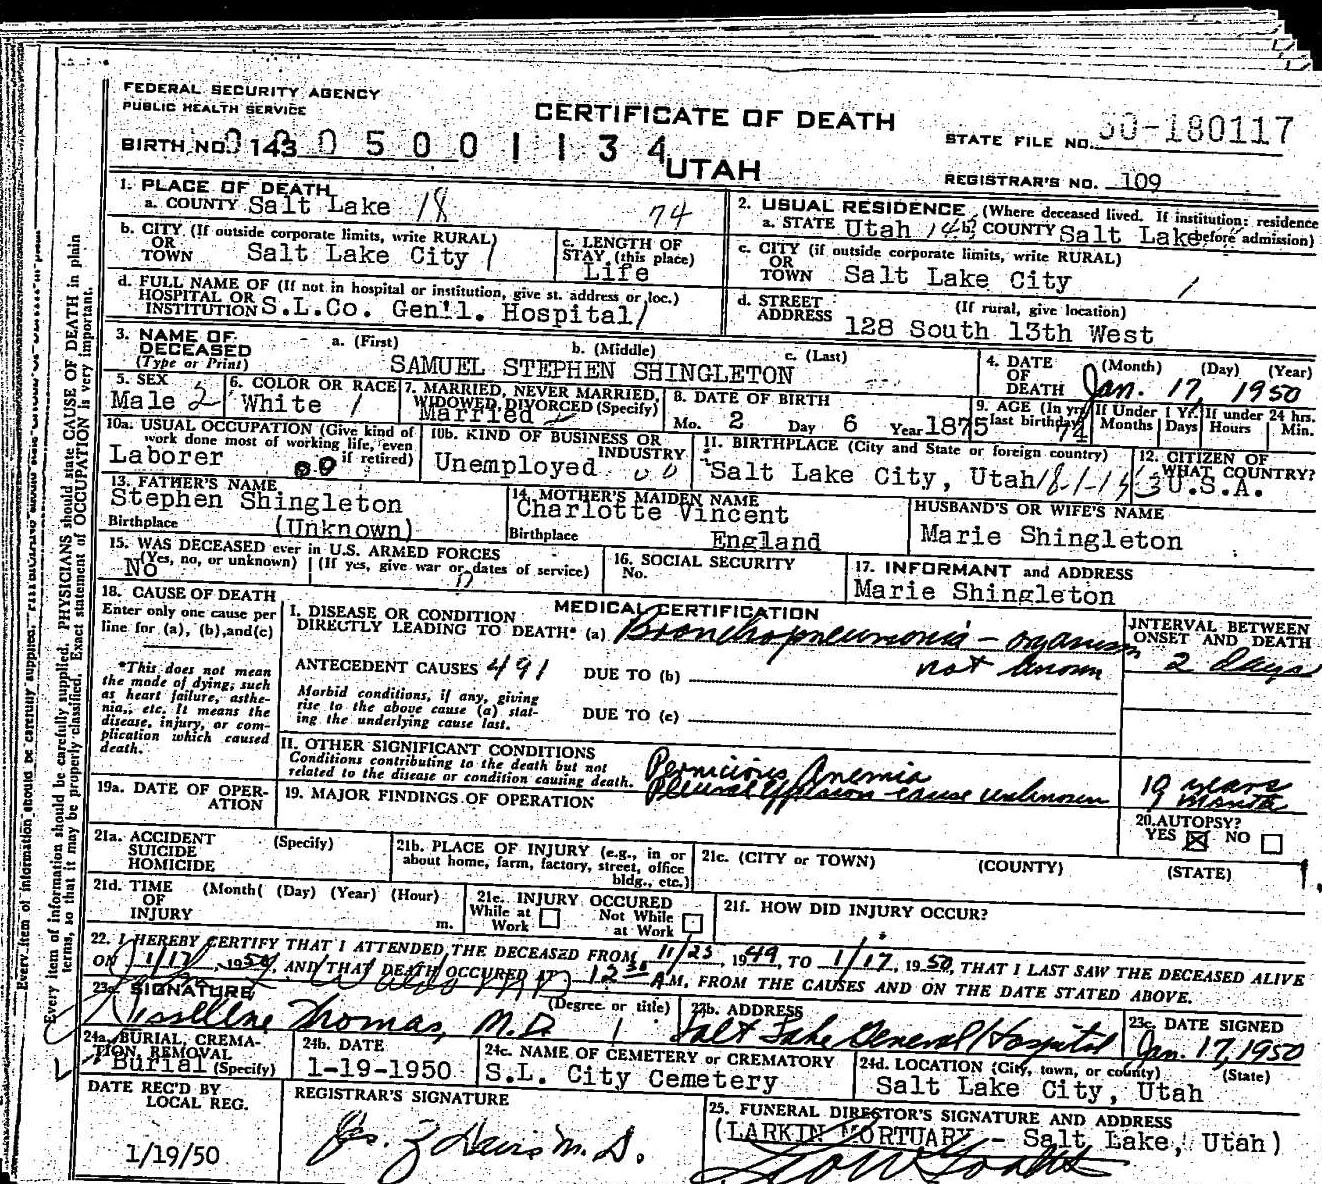 FEDERAL SECURITY AGENCY
PUBLIC HEALTH SERVICE
CERTIFICATE OF DEATH
UTAH
STATE FILE NO. 50-180117
BIRTH NO. 143 0 5 0 0 1 1 3 4
REGISTRAR'S NO. 109
1. PLACE OF DEATH
a. COUNTY Salt Lake 18 74
2. USUAL RESIDENCE (Where deceased lived. If institution: residence before admission)
a. STATE Utah b. COUNTY Salt Lake
b. CITY (If outside corporate limits, write RURAL) OR TOWN Salt Lake City 1
c. LENGTH OF STAY (this place) Life
c. CITY (if outside corporate limits, write RURAL) OR TOWN Salt Lake City 1
d. FULL NAME OF (If not in hospital or institution, give st. address or loc.) HOSPITAL OR INSTITUTION S.L.Co. Gen'l. Hospital 1
d. STREET ADDRESS (If rural, give location) 128 South 13th West
3. NAME OF DECEASED (Type or Print) a. (First) b. (Middle) c. (Last)
SAMUEL STEPHEN SHINGLETON
4. DATE OF DEATH (Month) (Day) (Year) Jan. 17, 1950
5. SEX Male 2
6. COLOR OR RACE White 1
7. MARRIED, NEVER MARRIED, WIDOWED, DIVORCED (Specify) Married
8. DATE OF BIRTH Mo. 2 Day 6 Year 1875
9. AGE (In yrs last birthday) 74
If Under 1 Yr. Months Days
If under 24 hrs. Hours Min.
10a. USUAL OCCUPATION (Give kind of work done most of working life, even if retired) Laborer
10b. KIND OF BUSINESS OR INDUSTRY Unemployed
11. BIRTHPLACE (City and State or foreign country) Salt Lake City, Utah
12. CITIZEN OF WHAT COUNTRY? U.S.A.
13. FATHER'S NAME Stephen Shingleton
Birthplace (Unknown)
14. MOTHER'S MAIDEN NAME Charlotte Vincent
Birthplace England
HUSBAND'S OR WIFE'S NAME Marie Shingleton
15. WAS DECEASED ever in U.S. ARMED FORCES
(Yes, no, or unknown) (If yes, give war or dates of service)
No
16. SOCIAL SECURITY No.
17. INFORMANT and ADDRESS Marie Shingleton
18. CAUSE OF DEATH
Enter only one cause per line for (a), (b), and (c)
*This does not mean the mode of dying, such as heart failure, asthenia, etc. It means the disease, injury, or complication which caused death.
MEDICAL CERTIFICATION
I. DISEASE OR CONDITION DIRECTLY LEADING TO DEATH* (a) Bronchopneumonia - organism not known
INTERVAL BETWEEN ONSET AND DEATH
2 days
ANTECEDENT CAUSES 491
DUE TO (b)
Morbid conditions, if any, giving rise to the above cause (a) stating the underlying cause last.
DUE TO (c)
II. OTHER SIGNIFICANT CONDITIONS
Conditions contributing to the death but not related to the disease or condition causing death.
Pernicious Anemia 10 years
Pleural effusion cause unknown month
19a. DATE OF OPERATION
19. MAJOR FINDINGS OF OPERATION
20. AUTOPSY? YES NO
21a. ACCIDENT SUICIDE HOMICIDE (Specify)
21b. PLACE OF INJURY (e.g., in or about home, farm, factory, street, office bldg., etc.)
21c. (CITY or TOWN) (COUNTY) (STATE)
21d. TIME OF INJURY (Month( (Day) (Year) (Hour) m.
21e. INJURY OCCURED
While at Work Not While at Work
21f. HOW DID INJURY OCCUR?
22. I HEREBY CERTIFY THAT I ATTENDED THE DECEASED FROM 11/23, 1949, TO 1/17, 1950, THAT I LAST SAW THE DECEASED ALIVE
ON 1/17, 1950, AND THAT DEATH OCCURED AT 12 A.M. FROM THE CAUSES AND ON THE DATE STATED ABOVE.
23a. SIGNATURE (Degree or title)
Thomas, M.D.
23b. ADDRESS
Salt Lake General Hospital
23c. DATE SIGNED
Jan. 17, 1950
24a. BURIAL, CREMATION, REMOVAL (Specify) Burial
24b. DATE 1-19-1950
24c. NAME OF CEMETERY or CREMATORY S.L. City Cemetery
24d. LOCATION (City, town, or county) (State)
Salt Lake City, Utah
DATE REC'D BY LOCAL REG.
1/19/50
REGISTRAR'S SIGNATURE
M.D.
25. FUNERAL DIRECTOR'S SIGNATURE AND ADDRESS
(LARKIN MORTUARY - Salt Lake, Utah)
Every item of information should be carefully supplied. PHYSICIANS should state CAUSE OF DEATH in plain
terms, so that it may be properly classified. Exact statement of OCCUPATION is very important.